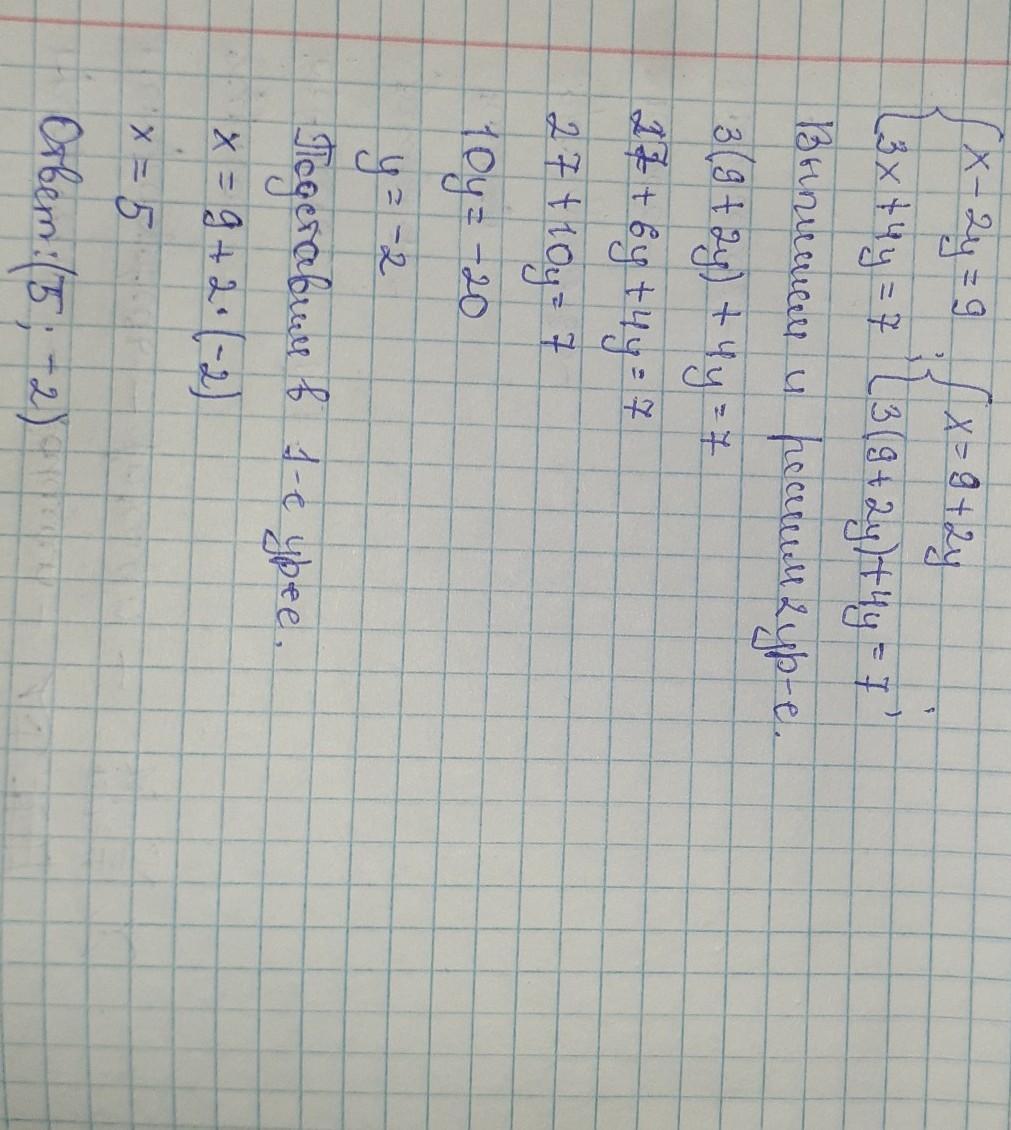 {x - 2y = 9 ; {x = 9 + 2y ;
{3x + 4y = 7 {3(9 + 2y) + 4y = 7 ,
Выпишем и решим 2 ур-е.
3(9 + 2y) + 4y = 7
27 + 6y + 4y = 7
27 + 10y = 7
10y = -20
y = -2
Подставим в 1-е ур-е.
x = 9 + 2·(-2)
x = 5
Ответ: (5; -2)